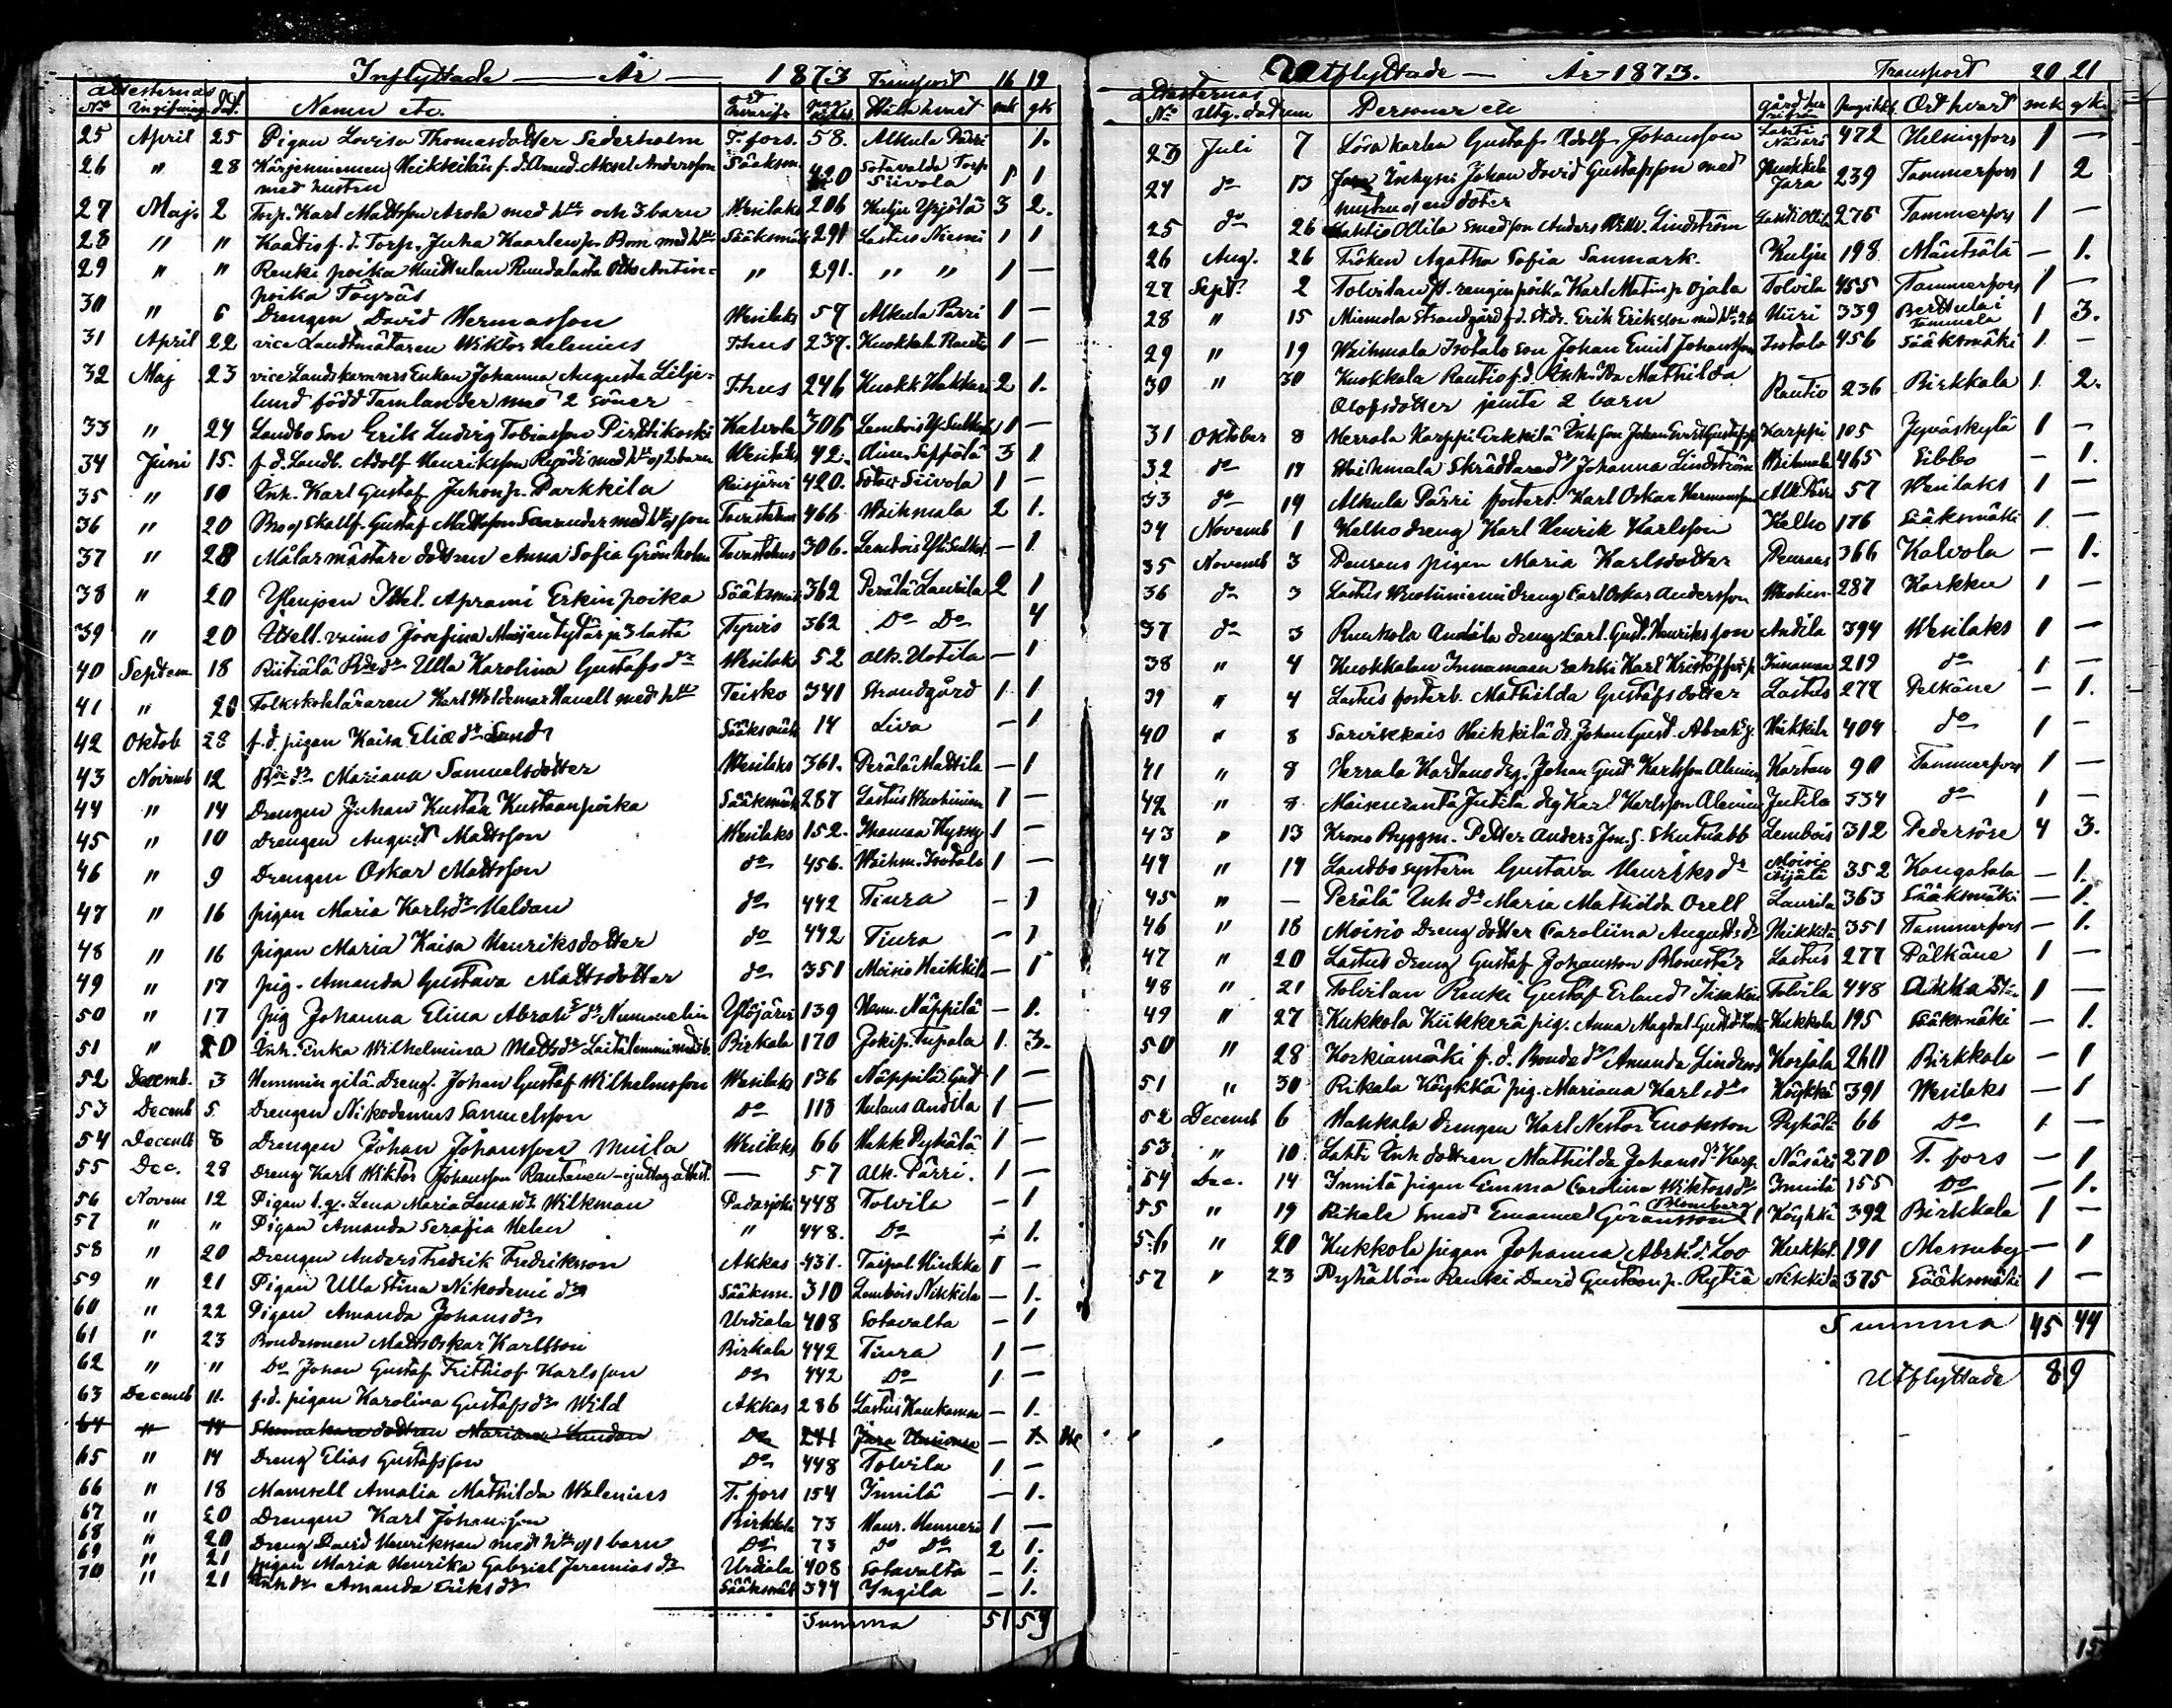 Inflyttade — År — 1873 Transport 16 19
Attesternas
No Ingifning dat. Namn etc. ort hvarifr. pag. Ställe hvart mk qk
25 April 25 Pigan Lovisa Thomasdotter Sederholm T. fors. 58. Alkula Pärri 1.
26 " 28 Heikkilän f. d. Aksel Andersson Sääksm. 420 Sotavalda Torp
med hustru Siivola 1 1
27 Maj 2 Torp. Karl Mattsson Arola med hu och 3 barn Wesilaks 206 Kulju Yrjölä 3 2.
28 " " f. d. Torp. Juha Kaarlenp. Bom med hu Sääksmäk 291 Lastus Niemi 1 1
29 " " Renki poika Otto Antin= " 291. " " 1 —
poika Töyräs
30 " 6 Drengen David Hermansson Wesilaks 57 Alkula Pärri 1 —
31 April 22 vice Landtmätaren Wiktor Helenius T:hus 237. Kuokkala Rautio 1 —
32 Maj 23 vice Landskamrers Enkan Johanna Augusta Lilje=
lund född Tamlander med 2 söner T:hus 246 Kuokk Hakkari 2 1.
33 " 24 Landbo Son Erik Ludvig Tobiasson Pirttikoski Kalvola 306 Lembois Yli Sulkola 1 —
34 Juni 15. f. d. Landb. Adolf Henriksson med hu o 2 barn Wesilaks 42. Aim. Seppälä 3 1
35 " 10 Inh. Karl Gustaf Juhonp. Parkkila 420. Sotav Siivola 1 —
36 " 20 Gustaf Mattsson med hu o son Tavastehus 466 Waihmala 2 1.
37 " 28 Målarmästare dottren Anna Sofia Grönholm Tavastehus 306. Lembois Yli Sulkol. — 1
38 " 20 Ylenjoen Itsel. Aprami Erkin poika Sääksmäk 362 Perälä Laurila 2 1
39 " 20 Itsell. vaimo Josefina 3 lasta Tyrvis 362 Do Do 4
40 Septem 18 Ulla Karolina Gustafs dr Wesilaks 52 Alk. Uotila — 1
41 " 20 Folkskoleläraren Karl Woldemar Hanell med hu Teisko 341 Strandgård 1 1
42 Oktob 28 f. d. pigan Kaisa Eliæ dr Lund Sääksmäk 14 Liva — 1
43 Novemb 12 Mariana Samuelsdotter Wesilaks 361. Perälä Mattila — 1
44 " 14 Drengen Juhan Kustaa Kustaanpoika Sääksmäk 287 Lastus 1 —
45 " 10 Drengen August Mattsson Wesilaks 152. 1 —
46 " 9 Drengen Oskar Mattsson do 456. Waihm. Isotalo 1 —
47 " 16 pigan Maria Karlsdr Heldan do 442 Tiura — 1
48 " 16 pigan Maria Kaisa Henriksdotter do 442 Tiura — 1
49 " 17 pig. Amanda Gustava Mattsdotter do 351 Moisio Heikkilä — 1
50 " 17 pig Johanna Elina Abrah. dr Nummelin Ylöjärvi 139 Hem. Näppilä — 1.
51 " 20 Inh. Enka Wilhelmina Mattsdr Birkala 170 Jokip. Tupala 1 3.
52 Decemb. 3 Hemmingilä Dreng. Johan Gustaf Wilhelmsson Wesilaks 136 Näppilä Gut 1 —
53 Decemb 5 Drengen Nikodemus Samuelsson Do 118 Andila 1 —
54 Decemb 8 Drengen Johan Johansson Muila Wesilaks 66 Hakk Pyhälä 1 —
55 Dec. 28 Dreng Karl Wiktor Johansson Rautanen — 57 Alk. Pärri. 1 —
56 Novem 12 Pigan Lena Maria Wilkman Padasjoki 448 Tolvila — 1
57 " " Pigan Amanda Serafia Helen " 448. Do — 1.
58 " 20 Drengen Anders Fredrik Fredriksson Akkas 431. Taipal 1 —
59 " 21 Pigan Ulla Stina Nikodemi dr Sääksm. 310 Lembois Nikkila — 1.
60 " 22 Pigan Amanda Johansdr Urdiala 408 Sotavalta — 1
61 " 23 Bondesonen Matts Oskar Karlsson Birkala 442 Tiura 1 —
62 " " Do Johan Gustaf Frithiof Karlsson Do 442 Do 1 —
63 Decemb 11. f. d. pigan Karolina Gustafsdr Wild Akkas 286 Lastus — 1.
64 " 11 Skomakare dottren Mariana Lundan Do 241 Jära — 1.
65 " 14 Dreng Elias Gustafsson Do 448 Tolvila 1 —
66 " 18 Mamsell Amalia Mathilda Walenius T. fors 154 Innilä — 1.
67 " 20 Drengen Karl Johansson Birkkala 73 Haur. Henneri 1 —
68 " 20 Dreng David Henriksson med hu o 1 barn Do 73 do Do 2 1.
69 " 21 pigan Maria Henrika Gabriel Jeremias dr Urdiala 408 Sotavalta — 1.
70 " 21 Inh dr Amanda Eriks dr Sääksmäk 374 Yngila — 1.
Summa 51 59
Utflyttade — År 1873. Transport 20 21
Attesternas
No Utg. datum Personer etc gård här ifrån Ort hvart mk qk.
23 Juli 7 Lösa karlen Gustaf Adolf Johansson Lahti Näsäri 472 Helsingfors 1 —
24 do 13 Inhyses Johan David Gustafsson med
hustru o en doter Kuokkala Jära 239 Tammerfors 1 2
25 do 26 Lahtis Ollila smedson Anders Wilh. Lindström Lahti Ollila 275 Tammerfors 1 —
26 Aug. 26 Fröken Agatha Sofia Sanmark. Kulju 198 Mäntsälä — 1.
27 Sept. 2 Tolvilan poika Karl Matinp. Ojala Tolvila 455 Tammerfors 1 —
28 " 15 Miemola Strandgård f. d. Erik Eriksson med hu o 2 b Niiri 339 Tammela 1 3.
29 " 19 Waihmala Isotalo son Johan Emil Johansson Isotalo 456 Sääksmäki 1 —
30 " 30 Kuokkala Rautio f. d. Inh. Mathilda
Olofsdotter jemte 2 barn Rautio 236 Birkkala 1. 2.
31 Oktober 8 Herrala Karppi Erkkilä Inh son Johan Gustafsson Karppi 105 Jyväskylä 1 —
32 do 17 Waihmala Skräddared. Johanna Lindström Waihmala 465 Sibbo — 1.
33 do 19 Alkula Pärri fosters. Karl Oskar Hermansson Alk Pärri 57 Wesilaks 1 —
34 Novemb 1 Kelho dreng Karl Henrik Karlsson Kelho 176 Sääksmäki 1 —
35 Novemb 3 Penraus pigan Maria Karlsdotter Penraus 366 Kalvola — 1.
36 do 3 Lastus dreng Carl Oskar Andersson 287 Karkku 1 —
37 do 3 Ruukola Andila dreng Carl. Gust. Henriksson Andila 394 Wesilaks 1 —
38 " 4 Kuokkalan Innamaan Karl Kristofferp. Innamaa 219 do 1 —
39 " 4 Lastus fosterb. Mathilda Gustafsdotter Lastus 277 Pelkäne — 1.
40 " 8 Sarvikkais Heikkilä d. Johan Gust. Heikkilä 404 do 1 —
41 " 8 Herrala Kartano dg. Johan Gust Karlsson Alenius Kartan 90 Tammerfors 1 —
42 " 8 Jutila dg Karl Karlsson Alenius Jutila 334 do 1 —
43 " 13 Krono Byggm. Petter Anders Skutnabb Lembois 312 Pedersöre 4 3.
44 " 14 Landbo systern Gustava Henriksdr Moisio 352 Kangasala — 1.
45 " — Perälä Inh dr Maria Mathilda Orell Laurila 363 Sääksmäki — 1.
46 " 18 Moisio Dreng dotter Caroliina Augustsdr Heikkilä 351 Tammerfors — 1.
47 " 20 Lastus dreng Gustaf Johansson Blomster Lastus 277 Pälkäne 1 —
48 " 21 Tolvilan Renki Gustaf Erland Tolvila 448 1 —
49 " 27 Kukkola pig. Anna Magdal Kukkola 195 Sääksmäki — 1.
50 " 28 Korkiamäki f. d. Bonde dr Amanda Lindroos Korjala 260 Birkkala — 1
51 " 30 Rikala Köykkä pig. Mariana Karlsdr Köykkä 391 Wesilaks — 1
52 Decemb 6 Hakkala drengen Karl Nestor Enoksson Pyhälä 66 Do 1 —
53 " 10 Lahti Inh dottren Mathilda Johansdr Näsäri 270 T. fors — 1
54 Dec. 14 Innilä pigan Emma Carolina Wiktorsdr Innilä 155 Do — 1.
55 " 19 Rikala Smed Emanuel Göransson Blomberg Köykkä 392 Birkkala 1 —
56 " 20 Kukkola pigan Johanna Abrh. d. Loo Kukkol. 191 Messuby — 1
57 " 23 Pyhällön Renki David Gustavp. Rytiä Nikkilä 375 Sääksmäki 1 —
Summa 45 44
Utflyttade 89
15